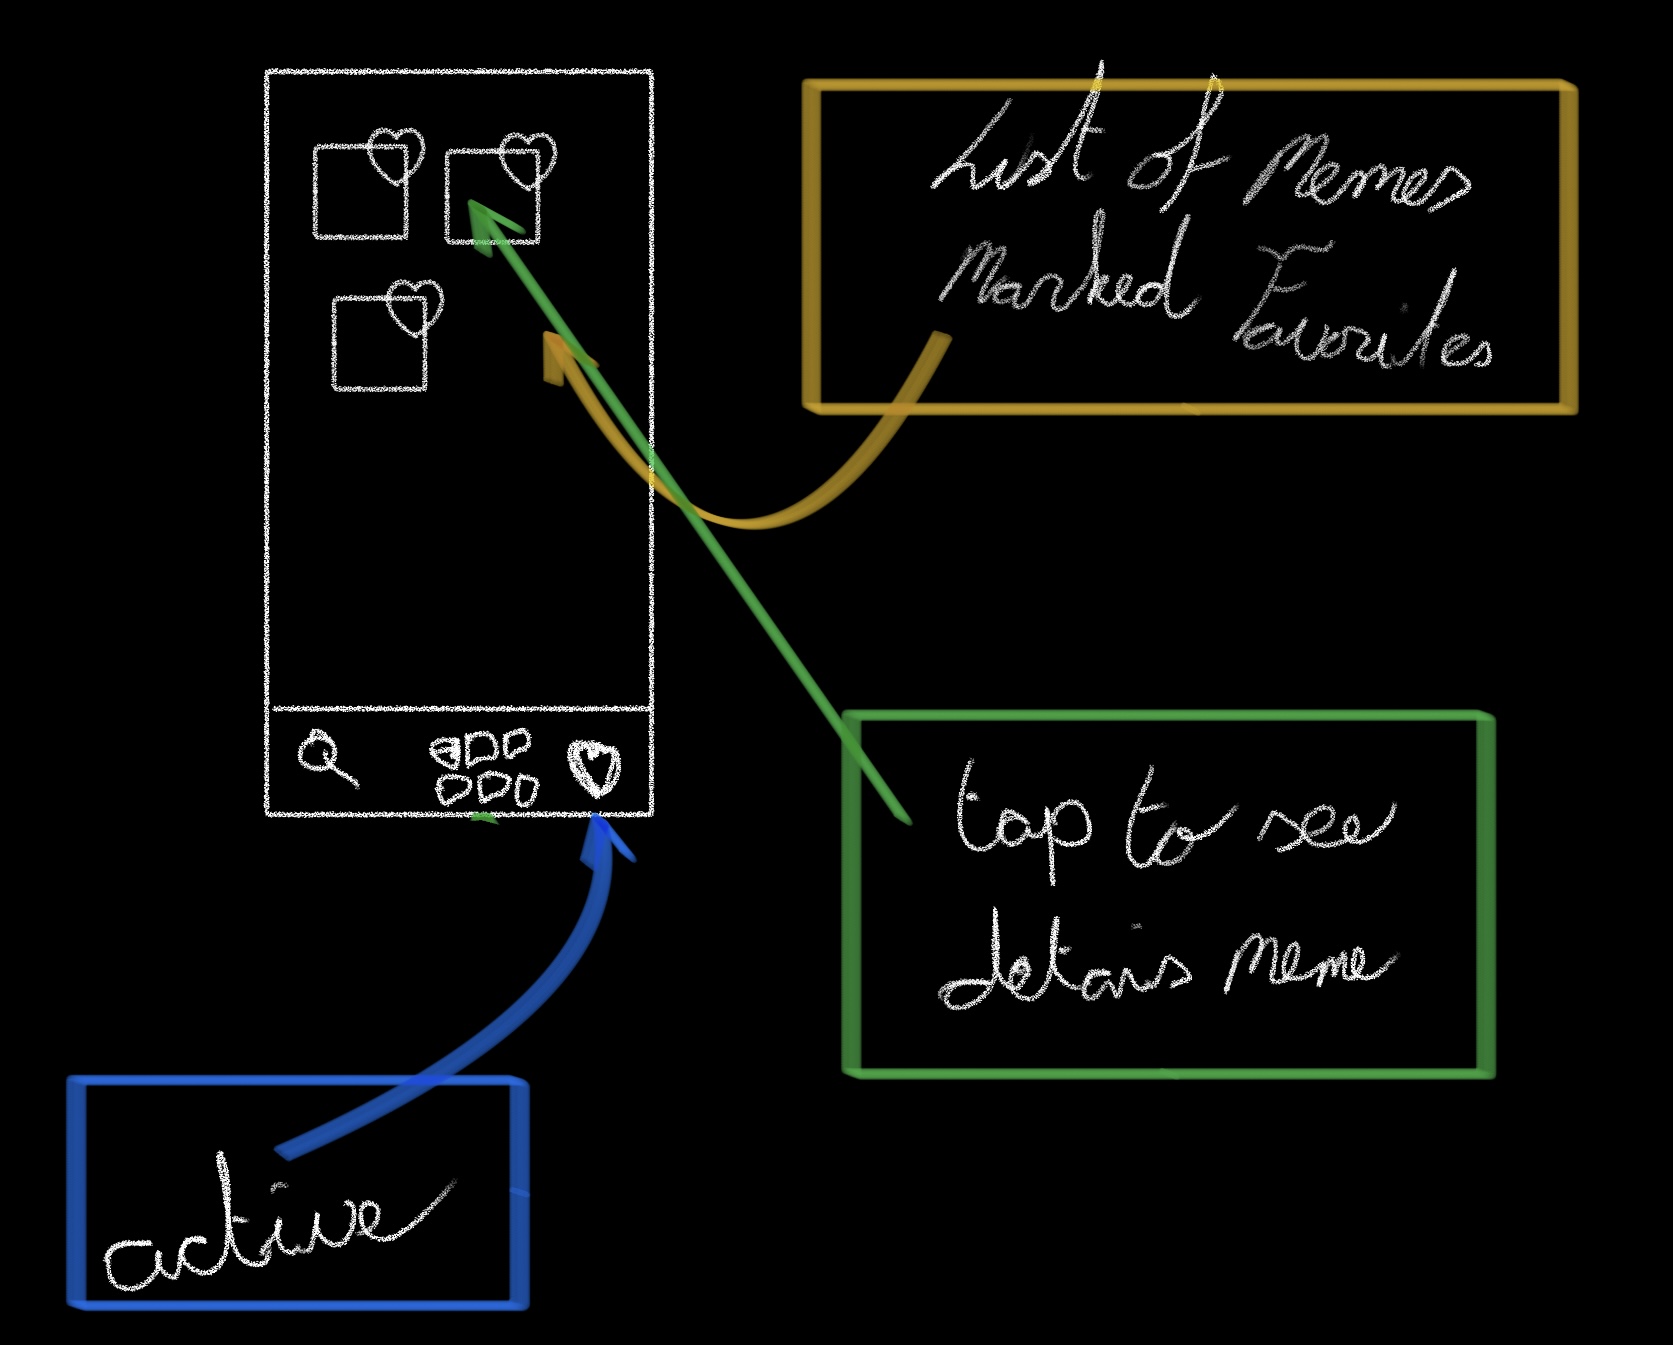 List of Memes
Marked Favorites
tap to see
detais meme
active